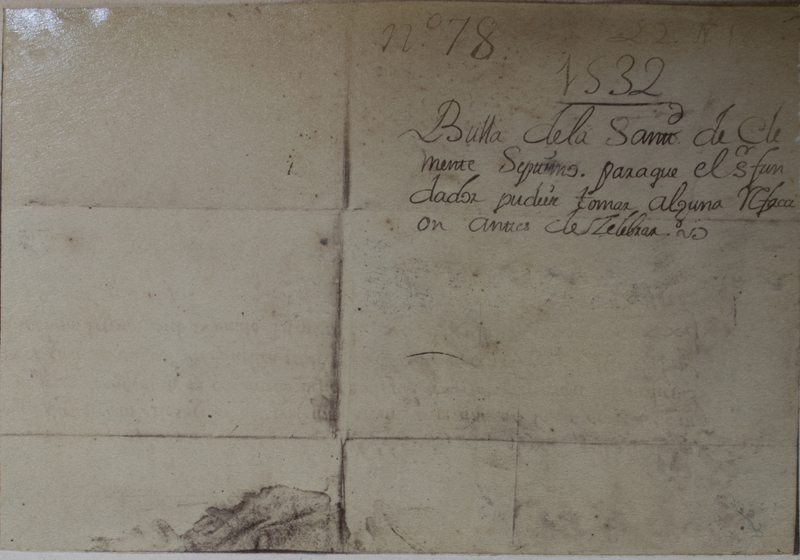 nº 78
1532
Bulla dela Santt de Cle
mente Septimo. paraque el Sr fun
dador pudiese tomar alguna Refacci
on antes de Zelebrar.